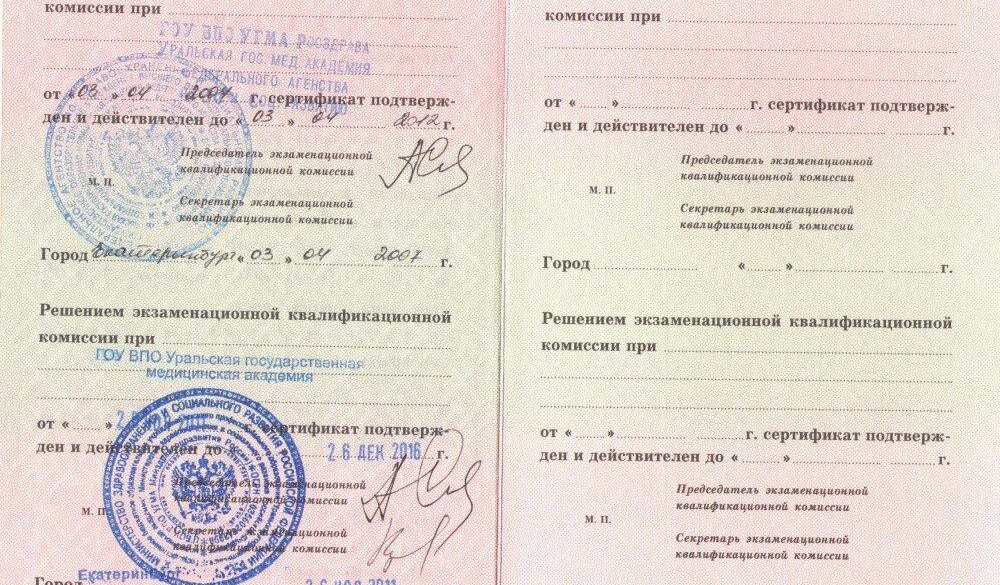 комиссии при
ГОУ ВПО УГМА РОСЗДРАВА
УРАЛЬСКАЯ ГОС. МЕД. АКАДЕМИЯ
ФЕДЕРАЛЬНОГО АГЕНСТВА
от «03» 04 2007 г. сертификат подтверж-
ден и действителен до «03» 04 2012 г.
Председатель экзаменационной
квалификационной комиссии
М. П.
Секретарь экзаменационной
квалификационной комиссии
Город Екатеринбург «03» 04 2007 г.
Решением экзаменационной квалификационной
комиссии при
ГОУ ВПО Уральская государственная
медицинская академия
от « » г. сертификат подтверж-
ден и действителен до 26 ДЕК 2016 г.
МИНИСТЕРСТВО ЗДРАВООХРАНЕНИЯ И СОЦИАЛЬНОГО РАЗВИТИЯ РОССИЙСКОЙ ФЕДЕРАЦИИ
Председатель экзаменационной
квалификационной комиссии
М. П.
Секретарь экзаменационной
квалификационной комиссии
Город Екатеринбург 2011
комиссии при
от « » г. сертификат подтверж-
ден и действителен до « » г.
Председатель экзаменационной
квалификационной комиссии
М. П.
Секретарь экзаменационной
квалификационной комиссии
Город « » г.
Решением экзаменационной квалификационной
комиссии при
от « » г. сертификат подтверж-
ден и действителен до « » г.
Председатель экзаменационной
квалификационной комиссии
М. П.
Секретарь экзаменационной
квалификационной комиссии